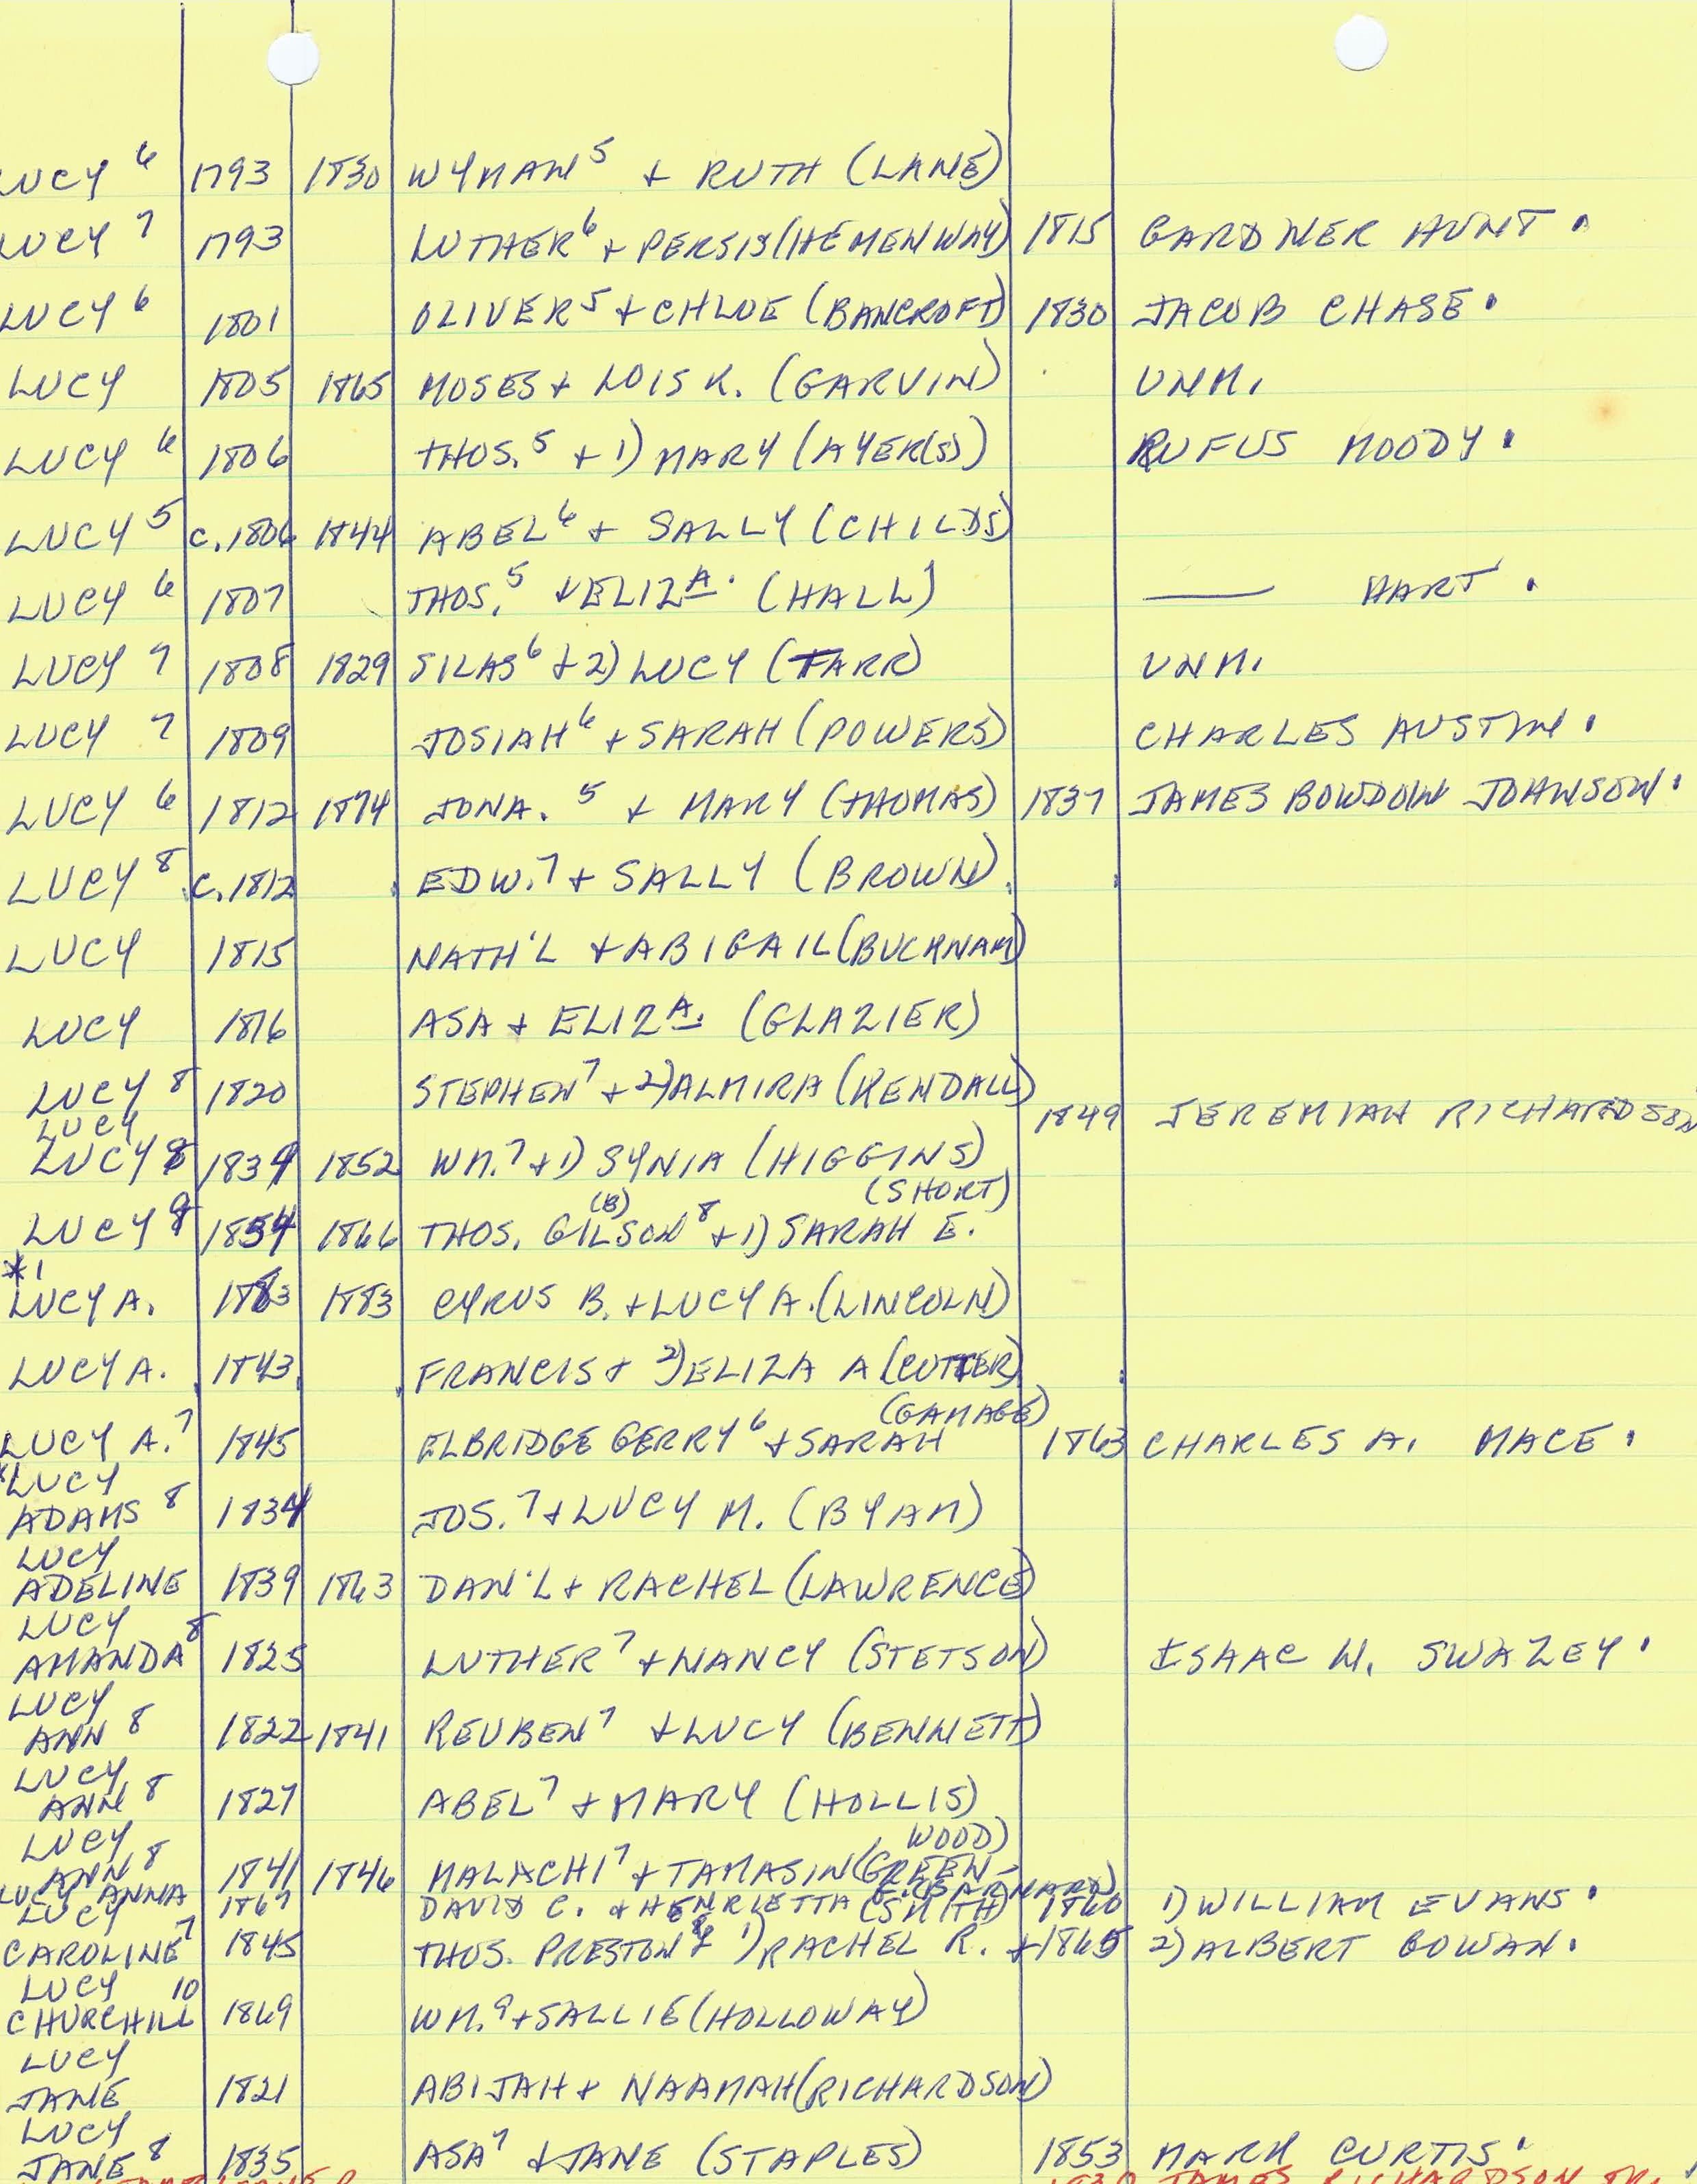 LUCY 6 1793 1830 WYMAN 5 + RUTH (LANE)
LUCY 7 1793 LUTHER 6 + PERSIS (HEMENWAY) 1815 GARDNER HUNT.
LUCY 6 1801 OLIVER 5 + CHLOE (BANCROFT) 1830 JACOB CHASE.
LUCY 1805 1865 MOSES + LOIS K. (GARVIN) UNM.
LUCY 6 1806 THOS. 5 + 1) MARY (AYER(S)) RUFUS MOODY.
LUCY 5 C. 1806 1844 ABEL 6 + SALLY (CHILDS)
LUCY 6 1807 THOS. 5 + ELIZA. (HALL) — HART.
LUCY 7 1808 1829 SILAS 6 + 2) LUCY (FARR) UNM.
LUCY 7 1809 JOSIAH 6 + SARAH (POWERS) CHARLES AUSTIN.
LUCY 6 1812 1874 JONA. 5 + MARY (THOMAS) 1837 JAMES BOWDOIN JOHNSON.
LUCY 8 C. 1812 EDW. 7 + SALLY (BROWN)
LUCY 1815 NATH'L + ABIGAIL (BUCKNAM)
LUCY 1816 ASA + ELIZA. (GLAZIER)
LUCY 8 1820 STEPHEN 7 + 2) ALMIRA (KENDALL)
LUCY 1849 JEREMIAH RICHARDSON
LUCY 8 1834 1852 WM. 7 + 1) SYNIA (HIGGINS)
(B) (SHORT)
LUCY 9 1854 1866 THOS. GILSON 8 + 1) SARAH E.
*1
LUCY A. 1883 1883 CYRUS B. + LUCY A. (LINCOLN)
LUCY A. 1843 FRANCIS + 2) ELIZA A (CUTTER)
(GAMAGE)
LUCY A. 7 1845 ELBRIDGE GERRY 6 + SARAH 1863 CHARLES A. MACE.
LUCY
ADAMS 8 1834 JOS. 7 + LUCY M. (BYAM)
LUCY
ADELINE 1839 1863 DAN'L + RACHEL (LAWRENCE)
LUCY
AMANDA 8 1825 LUTHER 7 + NANCY (STETSON) ISAAC W. SWAZEY.
LUCY
ANN 8 1822 1841 REUBEN 7 + LUCY (BENNETT)
LUCY
ANN 8 1827 ABEL 7 + MARY (HOLLIS)
LUCY WOOD)
ANN 8 1841 1846 MALACHI 7 + TAMASIN (GREEN-
LUCY ANNA 1867 DAVID C. + HENRIETTA (SMITH) 1860 1) WILLIAM EVANS.
LUCY
CAROLINE 7 1845 THOS. PRESTON + 1) RACHEL R. + 1865 2) ALBERT GOWAN.
LUCY 10
CHURCHILL 1869 WM. 9 + SALLIE (HOLLOWAY)
LUCY
JANE 1821 ABIJAH + NAAMAH (RICHARDSON)
LUCY
JANE 8 1835 ASA 7 + JANE (STAPLES) 1853 MARK CURTIS.
JAMES RICHARDSON JR.